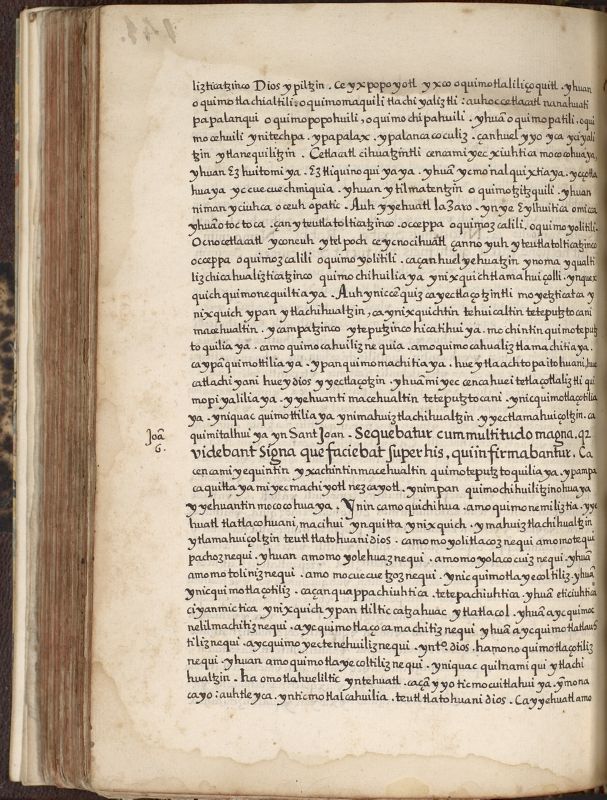 141.
lizticatzinco Dios ypiltzin. Ce yxpopoyotl yxco oquimotlalili çoquitl. yhuan
oquimotlachialtili: oquimomaquili tlachiyaliztli: auh oc ce tlacatl nanahuati
papalanqui oquimopopohuili, oquimochipahuili. yhuā oquimopatili. oqui
mocehuili ynitechpa. ypapalax. ypalanca cocoliz. çan huel yyo yca yciyali
tzin ytlanequilitzin. Ce tlacatl cihuatzintli cenca miyec xiuhtica mococohuaya,
yhuan Ezhuitomiya. Eztli quinoquiyaya. yhuā ycmonalquixtiaya. ycçotla
huaya yc cuecuechmiquia. yhuan ytilmatentzin oquimotzitzquili. yhuan
niman yciuhca oceuh opatic. Auh yyehuatl Lazaro. yn ye Eylhuitica omicca
yhuā otoctoca. çan yteutlatolticatzinco. occeppa oquimozcalili. oquimoyolitili.
Oc no ce tlacatl yconeuh ytelpoch ce ycnocihuātl çan no yuh yteutlatolticatzinco
occeppa oquimozcalili oquimoyolitili. ca çan huel yehuatzin ynoma yqualti
lizchicahualizticatzinco quimochihuilia ya ynixquich tlamahuiçolli. ynquex
quich quimonequiltia ya. Auh yn iccē quizca yectlaçotzintli moyetzticatca y
nixquich ypan ytlachihualtzin, ca ynixquichtin tehuicaltin teteputztocani
macehualtin. ycampatzinco yteputzinco hicatihui ya. mochintin quimoteputz
toquilia ya. camo quimocahuilizne quia. amo quimocahualiztlamachitia ya.
ca ypā quimottilia ya. ypan quimomachitia ya. huey tlaachtopaitohuani, hue
catlachiyani huey dios yyectlaçotzin. yhuā miyec cenca huei tetlaçotlaliztli qui
mopiyalilia ya. yyehuanti macehualtin teteputztocani. ynic quimotlaçotilia
ya. yniquac quimottilia ya ynimahuiztlachihualtzin. yyectlamahuiçoltzin. ca
quimitalhui ya yn Sant Joan. Sequebatur cum multitudo magna, qz
Joā
6.
videbant Signa que faciebat super his, qui infirmabantur. Ca
cenca miyequintin yxachintin macehualtin quimoteputztoquilia ya. ypampa
ca quitta ya miyec machiyotl nezcayotl. ynimpan quimochihuilitzinohua ya
yyehuantin mococohua ya. Ynin camo quichihua. amo quimonemiliztia. yye
huatl tlatlacohuani, macihui ynquitta ynixquich. ymahuiztlachihualtzin
ytlamahuiçoltzin teutl tlatohuani dios. camo moyolitlacoznequi amo motequi
pachoznequi. yhuan amo moyolehuaznequi. amo moyolacocuiznequi. yhuā
amo motoliniznequi. amo mocuecuetzoznequi. ynic quimotlayecoltiliz. yhuā
ynic quimotlaçotiliz. ca çan quappachiuhtica. tetepachiuhtica. yhuā eticiuhtica
ciyanmictica ynixquich ypan tliltic catzahuac ytlatlacol. yhuā ayc quimoc
nelilmachitiznequi. ayc quimotlaçocamachitiznequi yhuā ayc quimotlatlauh
tiliznequi. ayc quimoyectenehuiliznequi. ynto. dios. hamo no quimotlaçotiliz
nequi. yhuan amo quimotlayecoltiliznequi. yniquac quilnamiqui ytlachi
hualtzin. ha omotlahueliltic yntehuatl. ca çā yyo ticmocuitlahui ya. ymona
cayo: auh tle yca. yn ticmotlalcahuilia. teutl tlatohuani dios. Ca yyehuatl amo